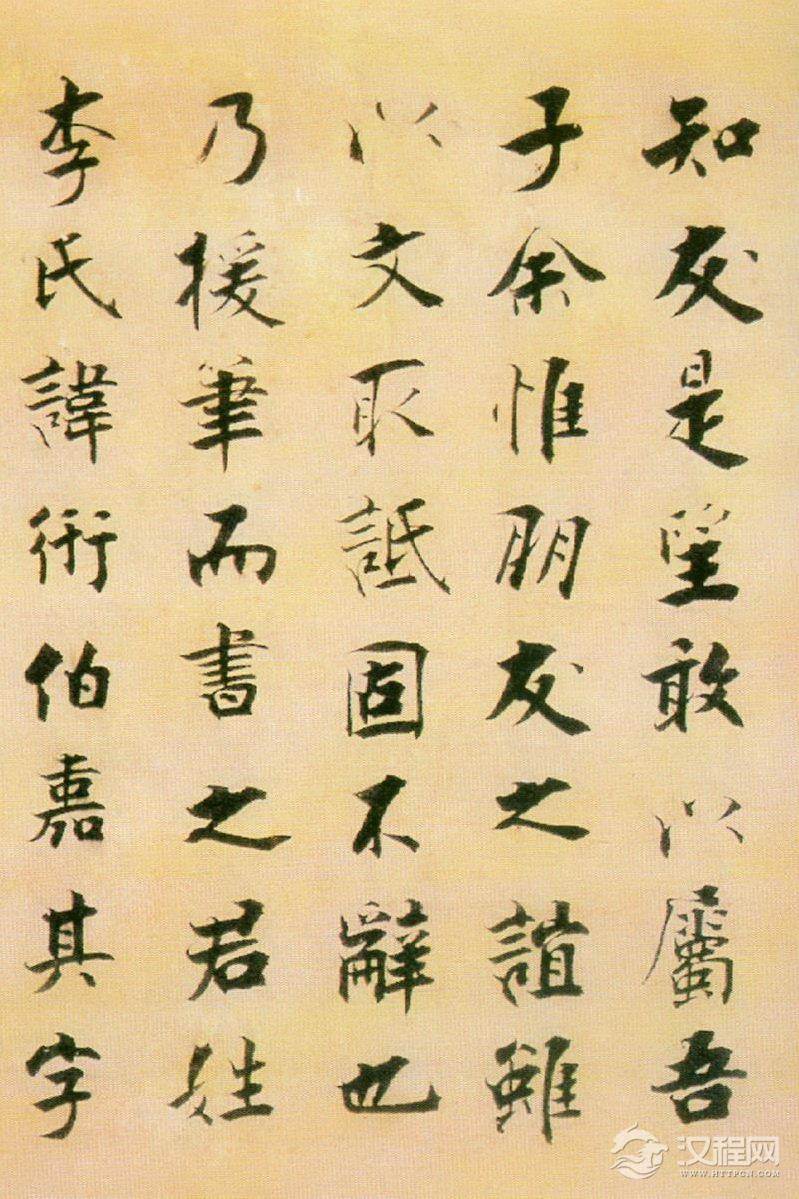 知友是望敢以屬吾
子余惟朋友之誼雖
以文取詆固不辭也
乃援筆而書之君姓
李氏諱衖伯嘉其字
汉程网
WWW.HTTPCN.COM